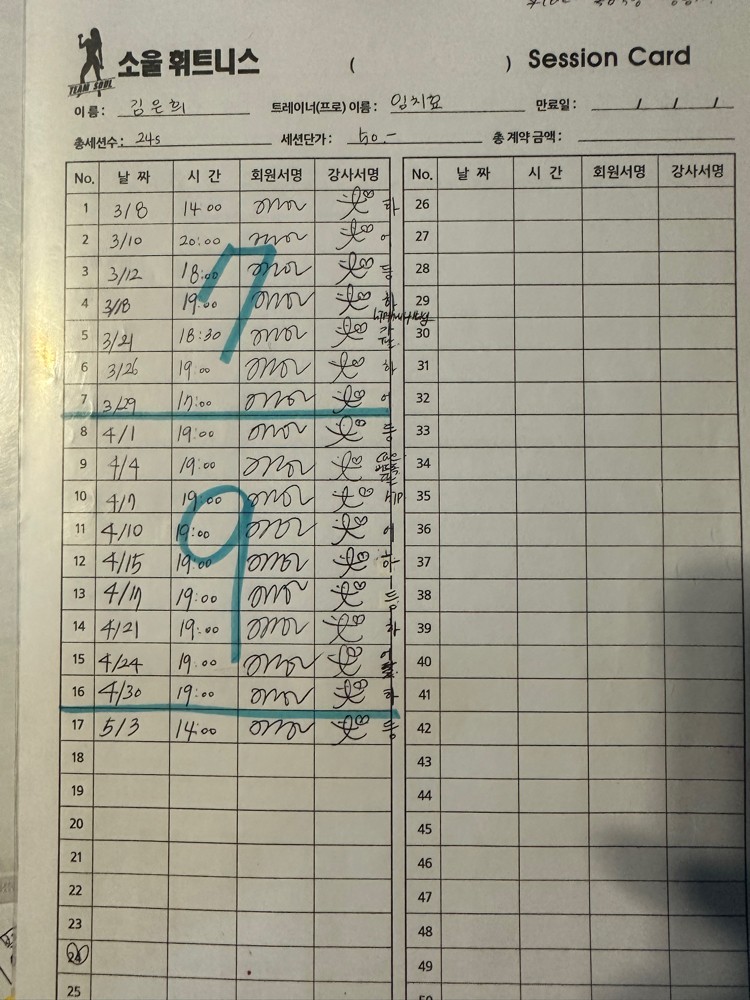 소울 휘트니스 ( ) Session Card
TEAM SOUL
이 름 : 김은희 트레이너(프로) 이름 : 임치효 만료일 : / / /
총세션수 : 24s 세션단가 : 50.- 총 계약 금액 :
No. 날 짜 시 간 회원서명 강사서명 No. 날 짜 시 간 회원서명 강사서명
1 3/8 14:00 하 26
2 3/10 20:00 어 27
3 3/12 18:00 등 28
4 3/18 19:00 하 29
5 3/21 18:30 30
6 3/26 19:00 하 31
7 3/29 17:00 어 32
7
8 4/1 19:00 등 33
9 4/4 19:00 34
10 4/7 19:00 35
11 4/10 19:00 어 36
12 4/15 19:00 하 37
13 4/17 19:00 등 38
14 4/21 19:00 하 39
15 4/24 19:00 어 40
16 4/30 19:00 하 41
9
17 5/3 14:00 등 42
18 43
19 44
20 45
21 46
22 47
23 48
24 49
25 50